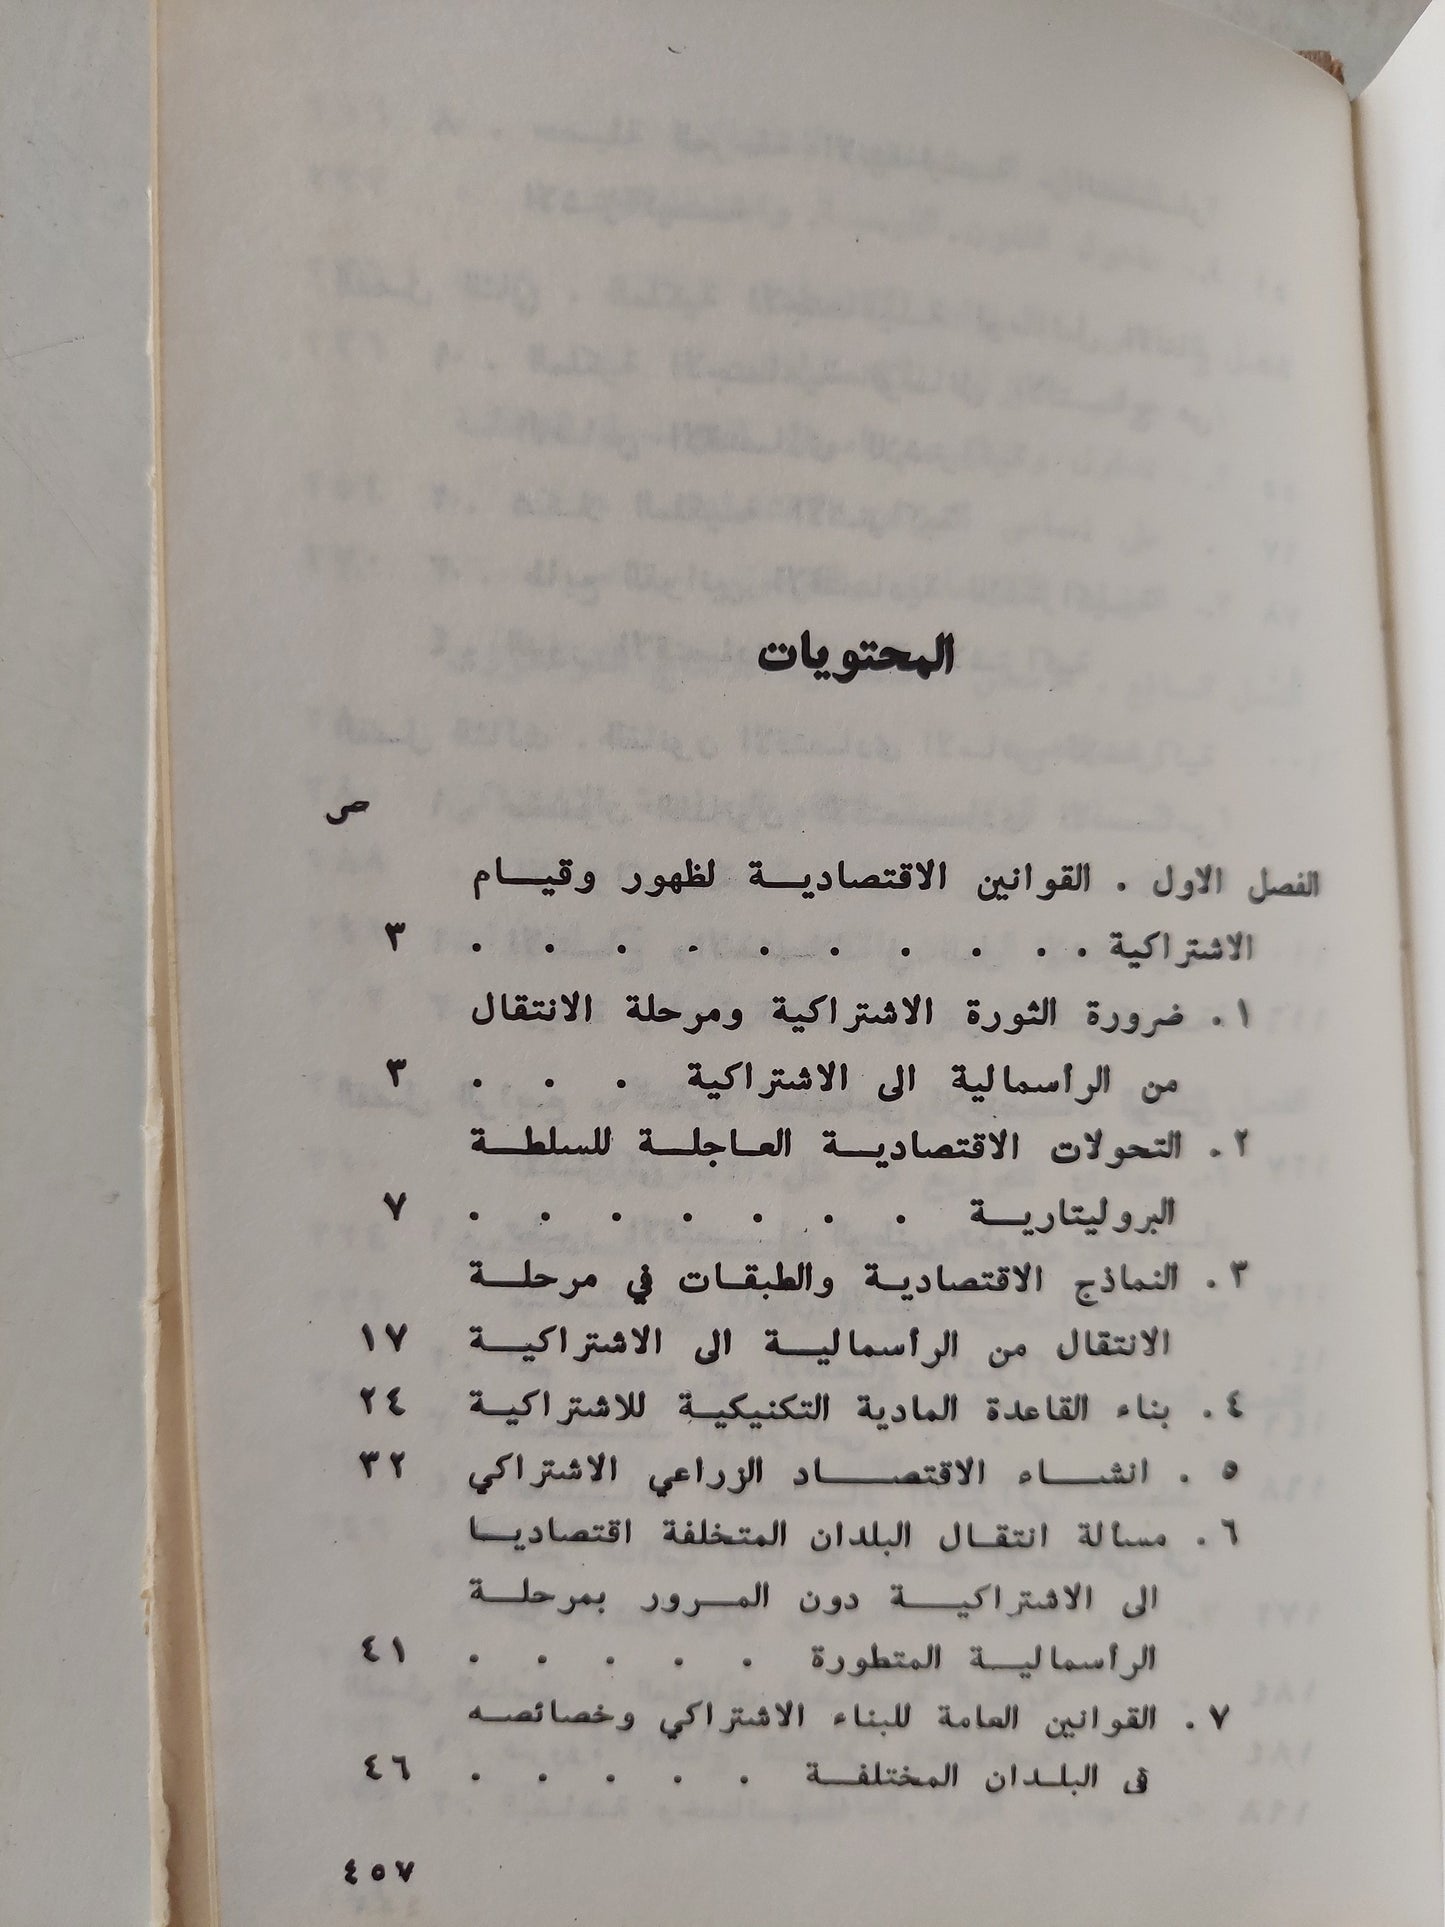 المحتويات
ص
الفصل الاول . القوانين الاقتصاديــة لظهور وقيــام
الاشتراكية . . . . . . . . . . . ٣
١ . ضرورة الثورة الاشتراكية ومرحلة الانتقال
من الرأسمالية الى الاشتراكية . . . ٣
٢ . التحولات الاقتصاديــة العــاجلــة للسلطــة
البروليتاريــة . . . . . . . ٧
٣ . النماذج الاقتصاديــة والطبقــات في مرحلــة
الانتقال من الرأسماليــة الى الاشتراكيــة ١٧
٤ . بناء القاعدة المادية التكنيكيــة للاشتراكيــة ٢٤
٥ . انشــاء الاقتصــاد الزراعي الاشتراكي ٣٢
٦ . مسألة انتقــال البلدان المتخلفة اقتصاديــا
الى الاشتراكيــة دون المــرور بمرحلــة
الرأسماليــة المتطورة . . . . . ٤١
٧ . القوانين العامة للبناء الاشتراكي وخصائصــه
فى البلــدان المختلفــة . . . . . ٤٦
٤٥٧